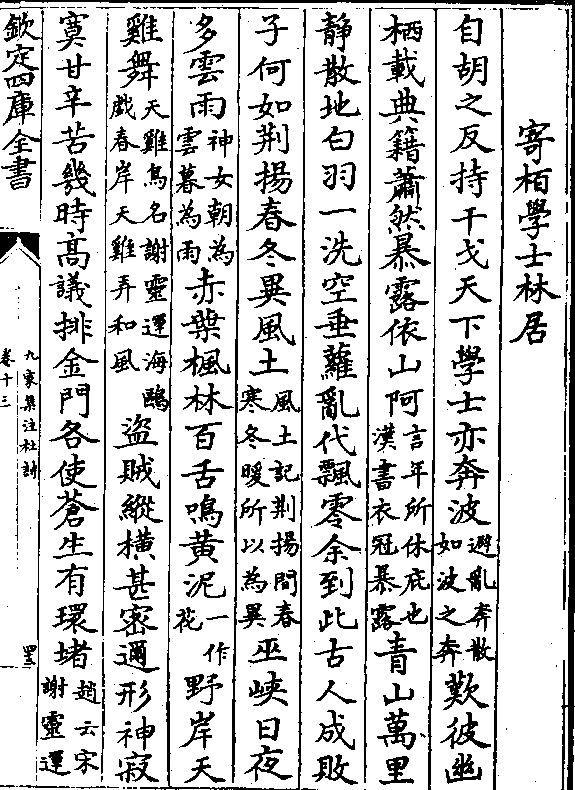 寄栢學士林居
自胡之反持干戈天下學士亦奔波避亂奔散如波之奔歎彼幽
栖載典籍蕭然暴露依山阿言年所休庇也漢書衣冠暴露青山萬里
静散地白羽一洗空垂蘿亂代飄零余到此古人成敗
子何如荆揚春冬異風土風土記荆揚間春寒冬暖所以為異巫峽日夜
多雲雨神女朝為雲暮為雨赤葉楓林百舌鳴黄泥一作花野岸天
雞舞天雞鳥名謝靈運海鷗戲春岸天雞弄和風盜賊縱橫甚密邇形神寂
寞甘辛苦幾時髙議排金門各使蒼生有環堵趙云宋謝靈運
欽定四庫全書
九家集注杜詩
卷十三